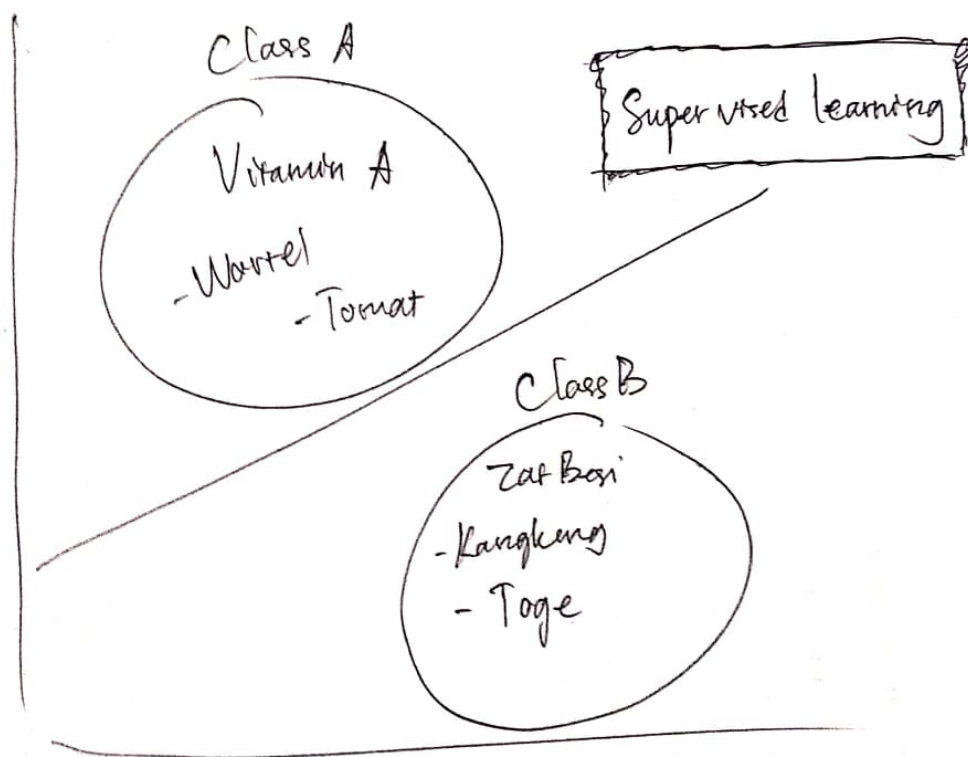 Class A
Supervised learning
Vitamin A
- Wortel
- Tomat
Class B
Zat Besi
- Kangkung
- Toge